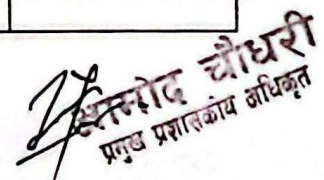 चौधरी
प्रमुख प्रशासकीय अधिकृत